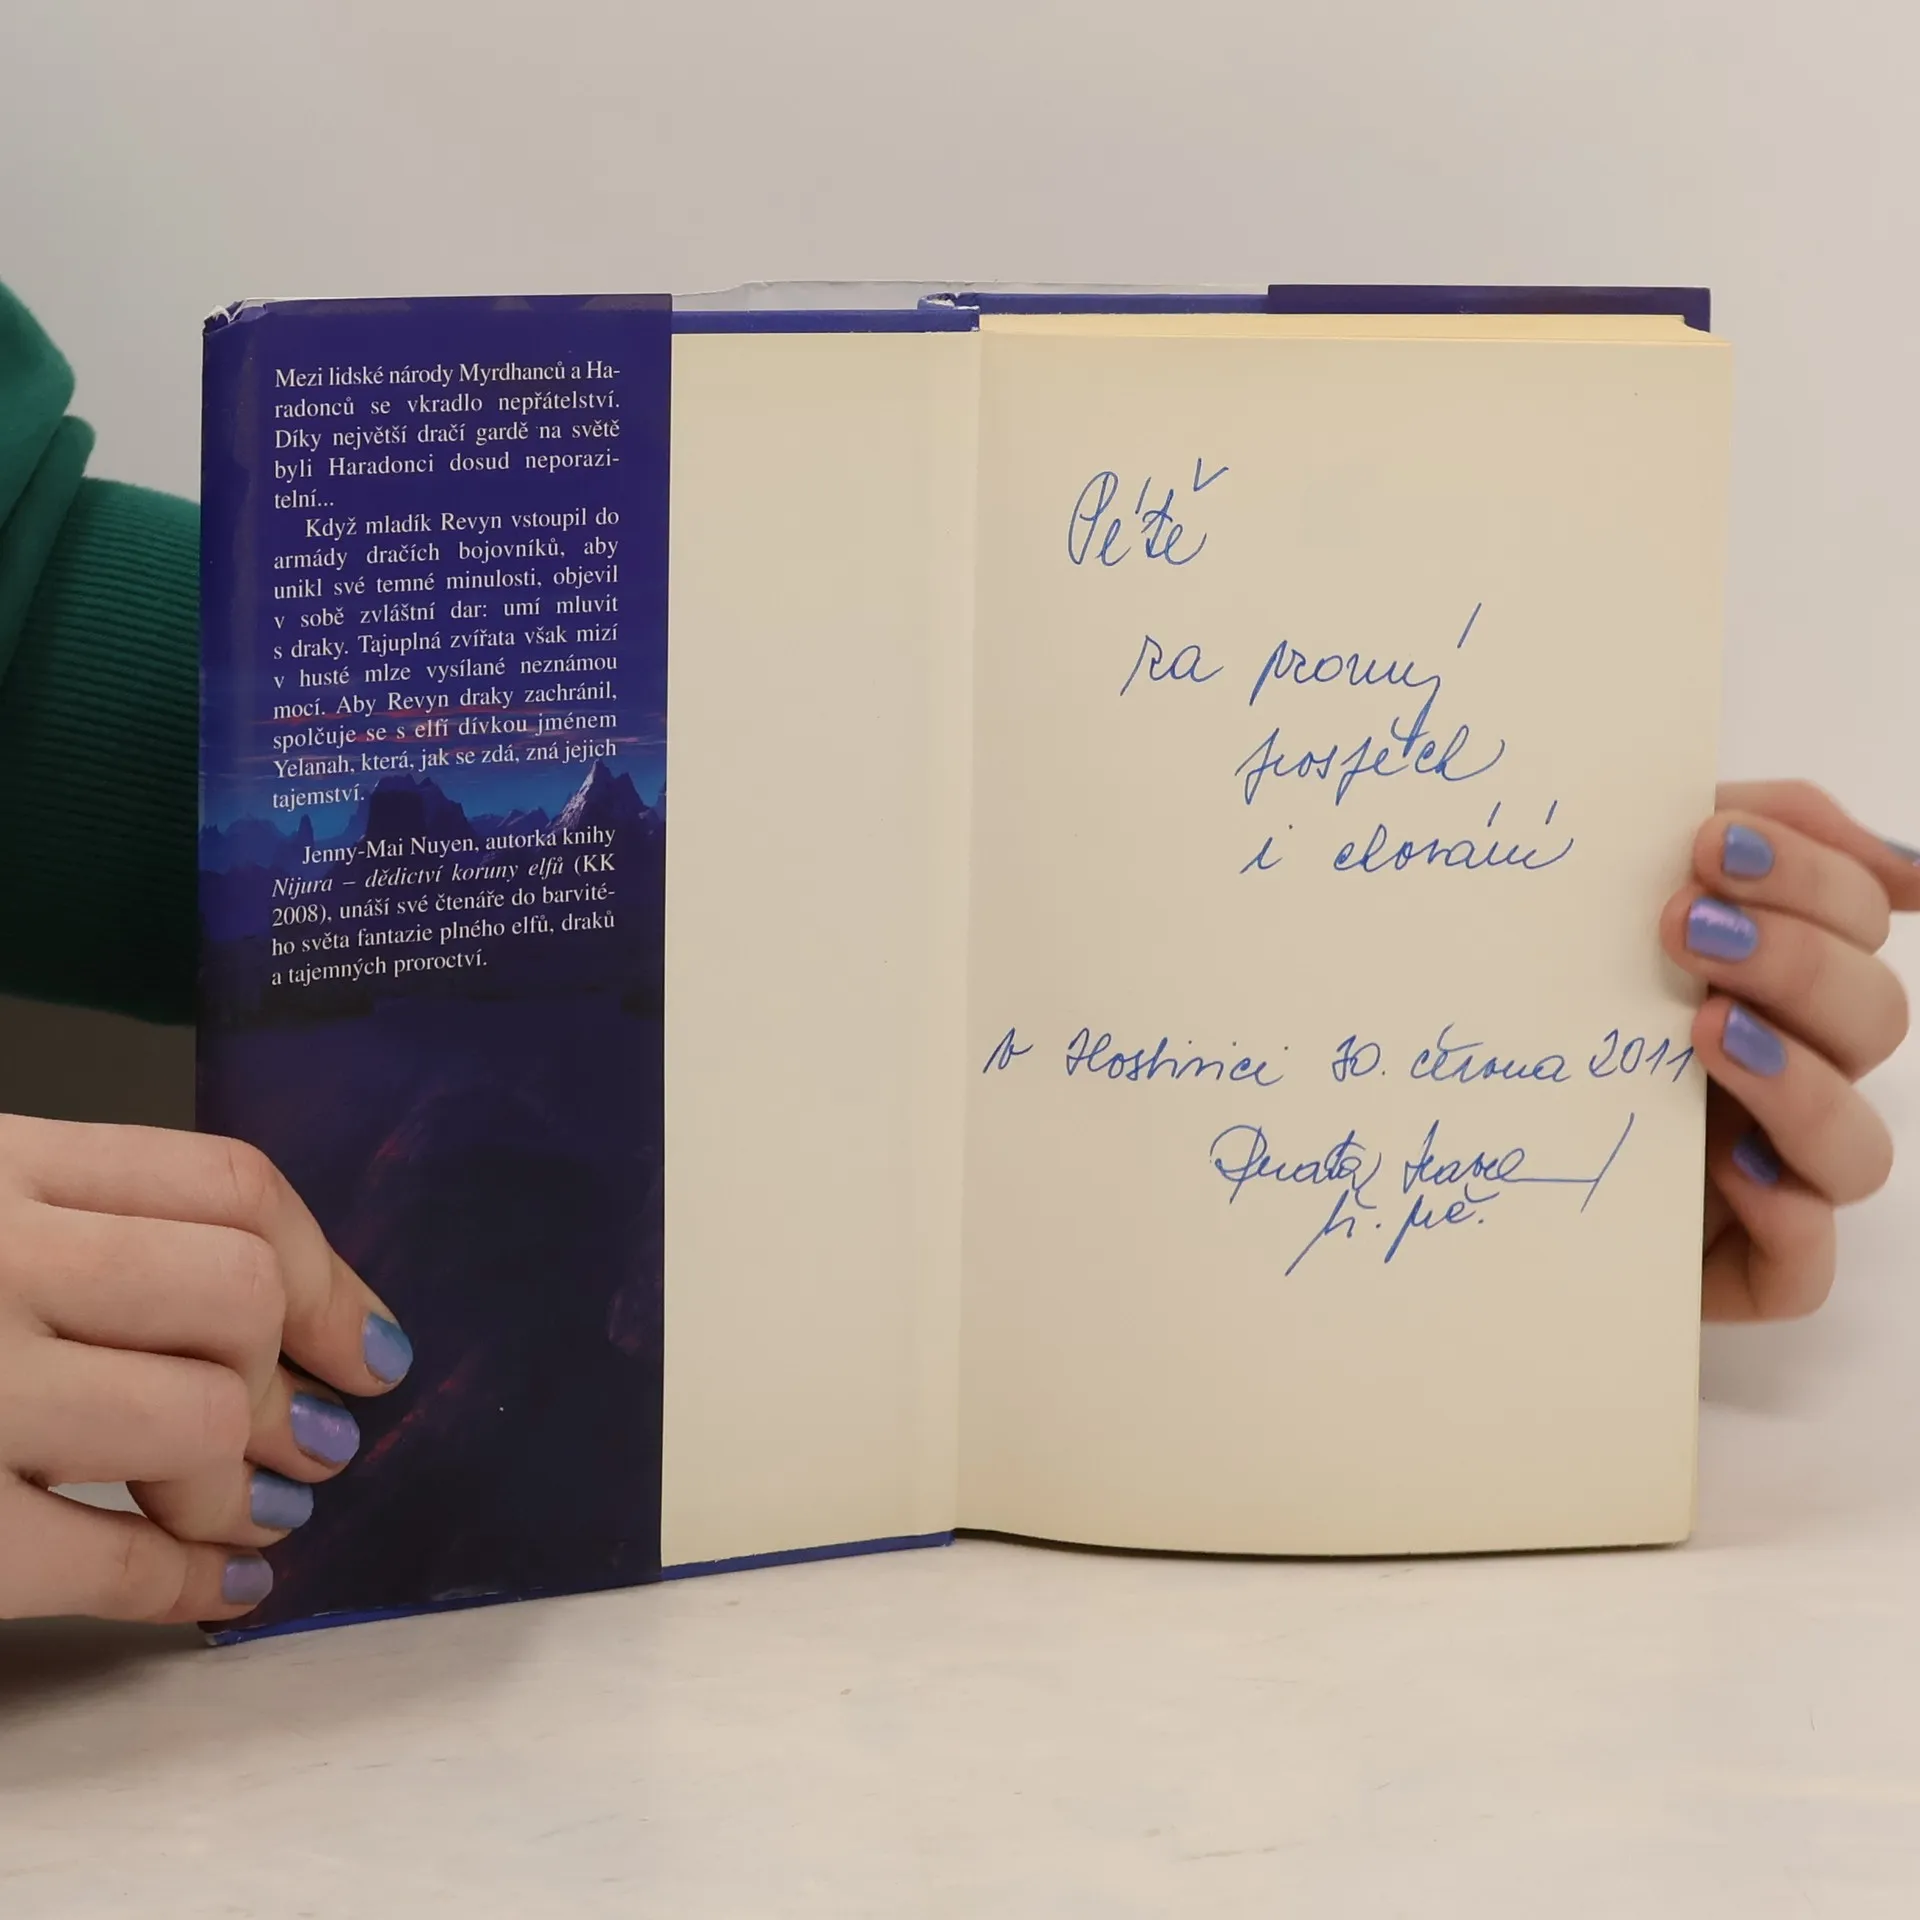 Mezi lidské národy Myrdhanců a Ha-
radonců se vkradlo nepřátelství.
Díky největší dračí gardě na světě
byli Haradonci dosud neporazi-
telní...
Když mladík Revyn vstoupil do
armády dračích bojovníků, aby
unikl své temné minulosti, objevil
v sobě zvláštní dar: umí mluvit
s draky. Tajuplná zvířata však mizí
v husté mlze vysílané neznámou
mocí. Aby Revyn draky zachránil,
spolčuje se s elfí dívkou jménem
Yelanah, která, jak se zdá, zná jejich
tajemství.
Jenny-Mai Nuyen, autorka knihy
Nijura – dědictví koruny elfů (KK
2008), unáší své čtenáře do barvité-
ho světa fantazie plného elfů, draků
a tajemných proroctví.
Pétě
za provný
prospěch
i chování
V Hostinici 30. června 2011
Renata
tř. uč.